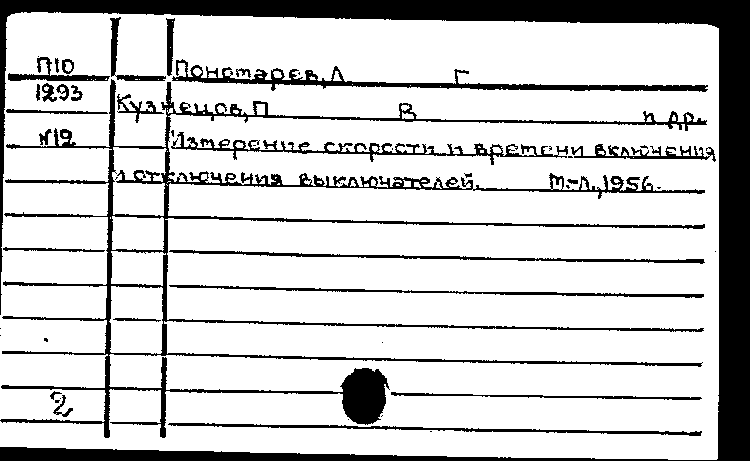 П10 Пономарев, Л Г
1293 Кузнецов, П В и др.
N12 Измерение скорости и времени включения
и отключения выключателей. М.-Л., 1956.
2